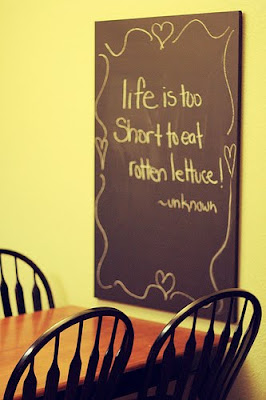 life is too
Short to eat
rotten lettuce!
~unknown